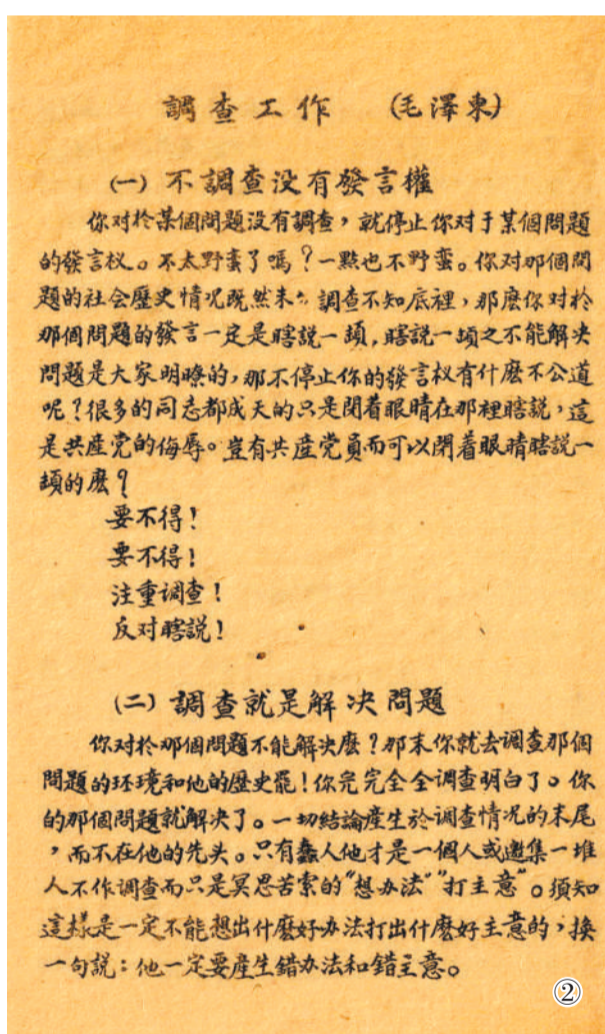 調查工作 (毛澤東)
(一) 不調查没有發言權
你对於某個問題没有調查，就停止你对于某個問題
的發言权。不太野蛮了嗎？一點也不野蛮。你对那個問
題的社会歷史情况既然未 調查不知底裡，那麽你对於
那個問題的發言一定是瞎説一頓，瞎説一頓之不能解决
問題是大家明瞭的，那不停止你的發言权有什麽不公道
呢？很多的同志都成天的只是閉着眼睛在那裡瞎説，這
是共産党的侮辱。豈有共産党員而可以閉着眼睛瞎説一
頓的麽？
要不得！
要不得！
注重调查！
反对瞎説！
(二) 調查就是解决問題
你对於那個問題不能解决麽？那末你就去调查那個
問題的环境和他的歷史罷！你完完全全调查明白了。你
的那個問題就解决了。一切結論産生於调查情况的末尾
，而不在他的先头。只有蠢人他才是一個人或邀集一堆
人不作调查而只是冥思苦索的"想办法""打主意"。須知
這樣是一定不能想出什麽好办法打出什麽好主意的，換
一句説：他一定要産生錯办法和錯主意。
②